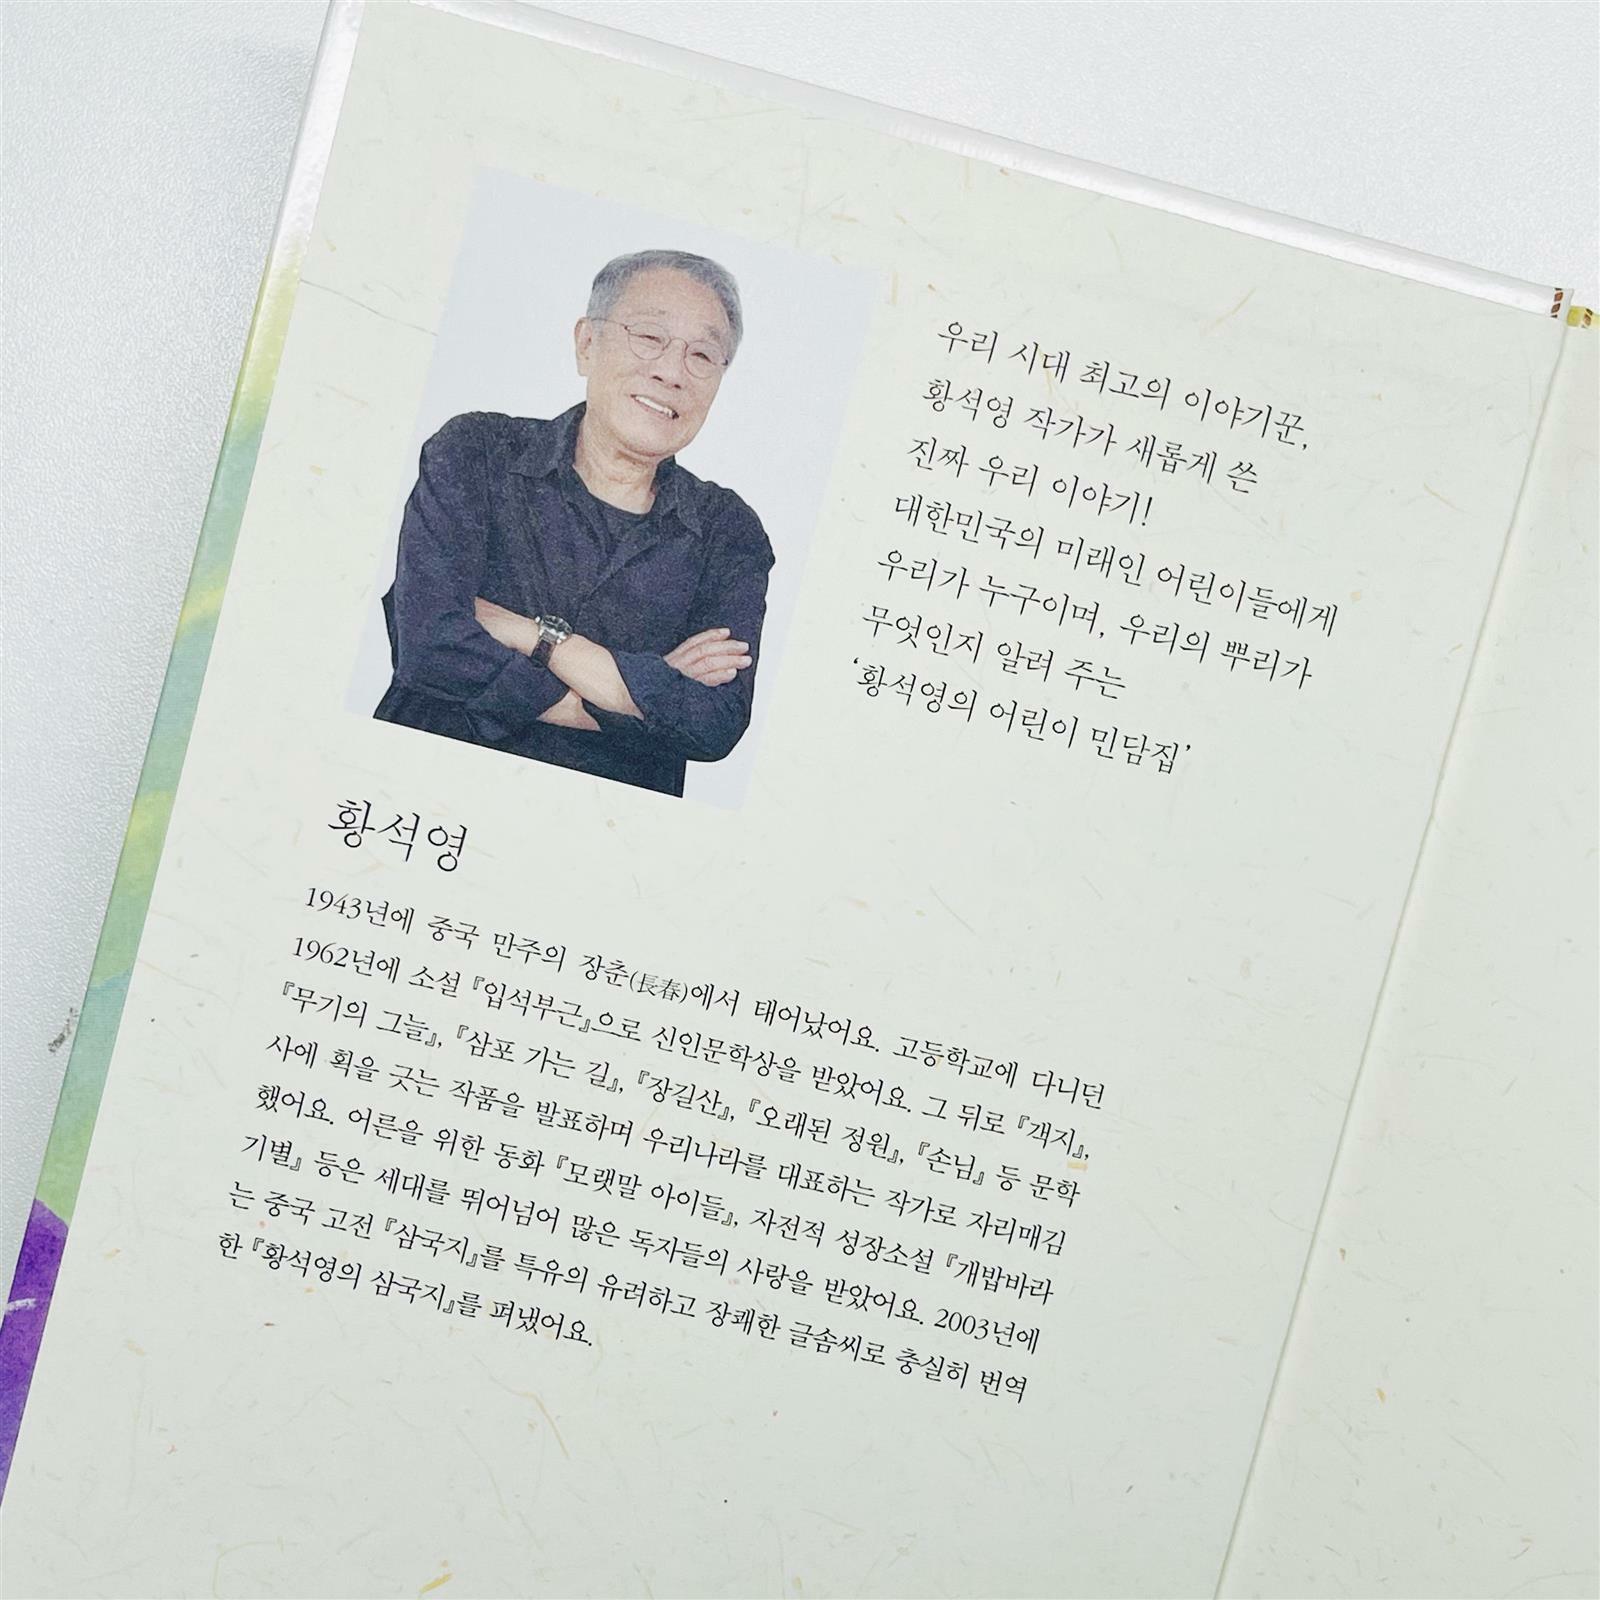 우리 시대 최고의 이야기꾼,
황석영 작가가 새롭게 쓴
진짜 우리 이야기!
대한민국의 미래인 어린이들에게
우리가 누구이며, 우리의 뿌리가
무엇인지 알려 주는
‘황석영의 어린이 민담집’
황석영
1943년에 중국 만주의 장춘(長春)에서 태어났어요. 고등학교에 다니던
1962년에 소설 『입석부근』으로 신인문학상을 받았어요. 그 뒤로 『객지』,
『무기의 그늘』, 『삼포 가는 길』, 『장길산』, 『오래된 정원』, 『손님』 등 문학
사에 획을 긋는 작품을 발표하며 우리나라를 대표하는 작가로 자리매김
했어요. 어른을 위한 동화 『모랫말 아이들』, 자전적 성장소설 『개밥바라
기별』 등은 세대를 뛰어넘어 많은 독자들의 사랑을 받았어요. 2003년에
는 중국 고전 『삼국지』를 특유의 유려하고 장쾌한 글솜씨로 충실히 번역
한 『황석영의 삼국지』를 펴냈어요.